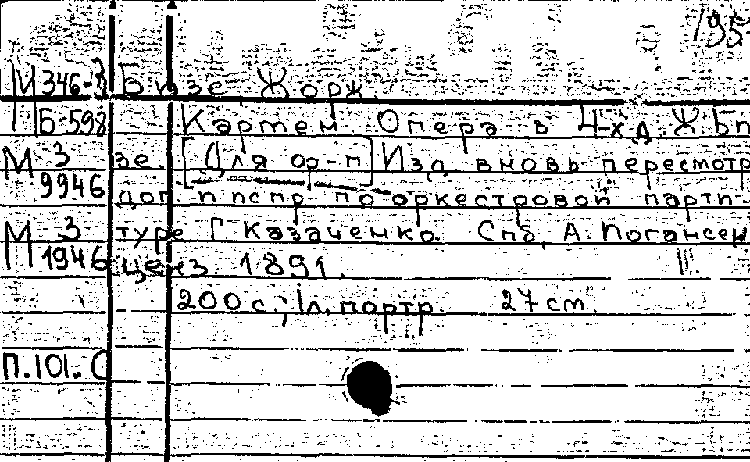 195
М 346-3 Бизе, Жорж
Б-598 Кармен. Опера в 4-х д. Ж. Би
М 3 зе. [Для ор-п] Изд. вновь пересмотр
9946 доп. и испр. по оркестровой парти-
М 3 туре Г. Казаченко. Спб, А. Иогансен
1946 ценз. 1891.
200 с.; 1 л. портр. 27 cm.
П.101. С